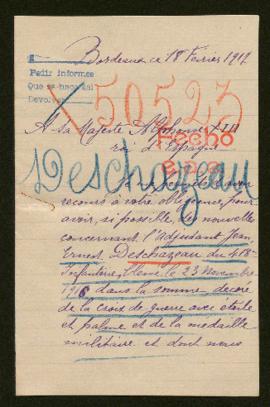 Bordeaux ce 18 Février 1917
Pedir informes
Que se busca al
Devolver
50523
A Sa Majesté Alphonse XIII
Fecho
roi d'Espagne
Deschazeau
recours à votre obligeance pour
avoir, si possible des nouvelles
concernant l'adjudant Jean
Ernest Deschazeau du 418e
Infanterie, 11eme le 23 Novembre
1916 dans la somme décoré
de la croix de guerre avec étoile
et palme et de la médaille
militaire et dont nous